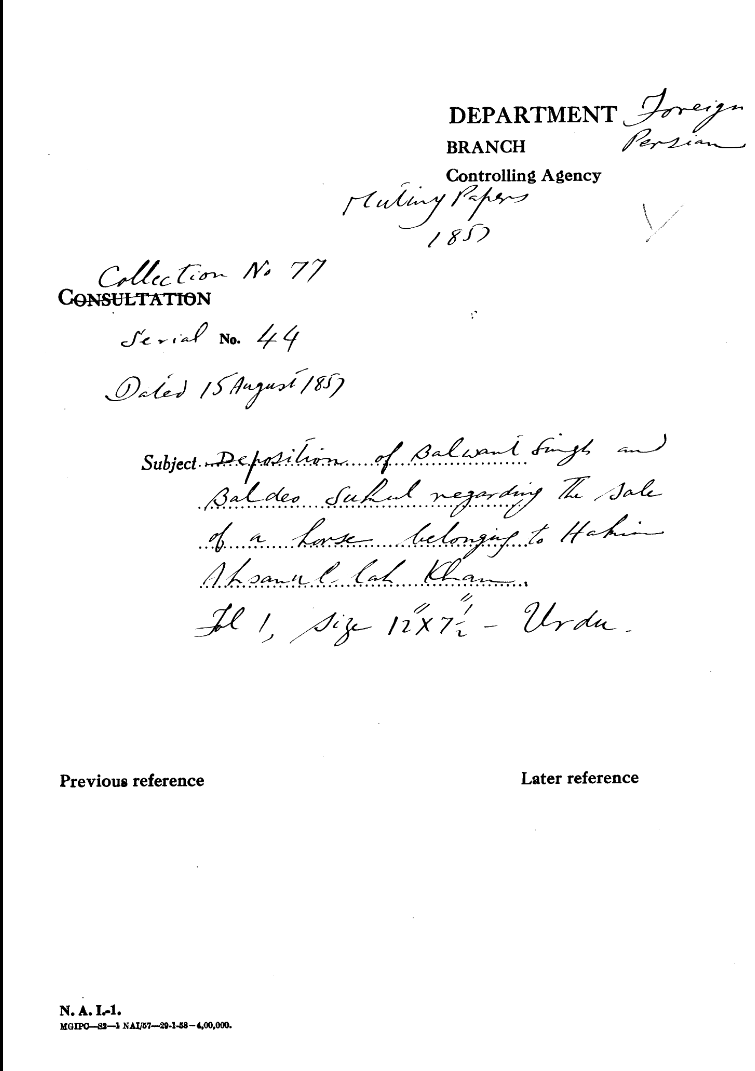 DEPARTMENT Foreign
BRANCH Persian
Controlling Agency
Mutiny Papers
1857
Collection No 77
CONSULTATION
Serial No. 44
Dated 15 August 1857
Subject Deposition of Balwant Singh and
Baldeo Sukul regarding the sale
of a horse belonging to Hakim
Ahsanul lah Khan.
Fol 1, Size 12"X7½" - Urdu.
Previous reference Later reference
N. A. I.-1.
MGIPC—S2—1 NAI/57—29-1-58—4,00,000.